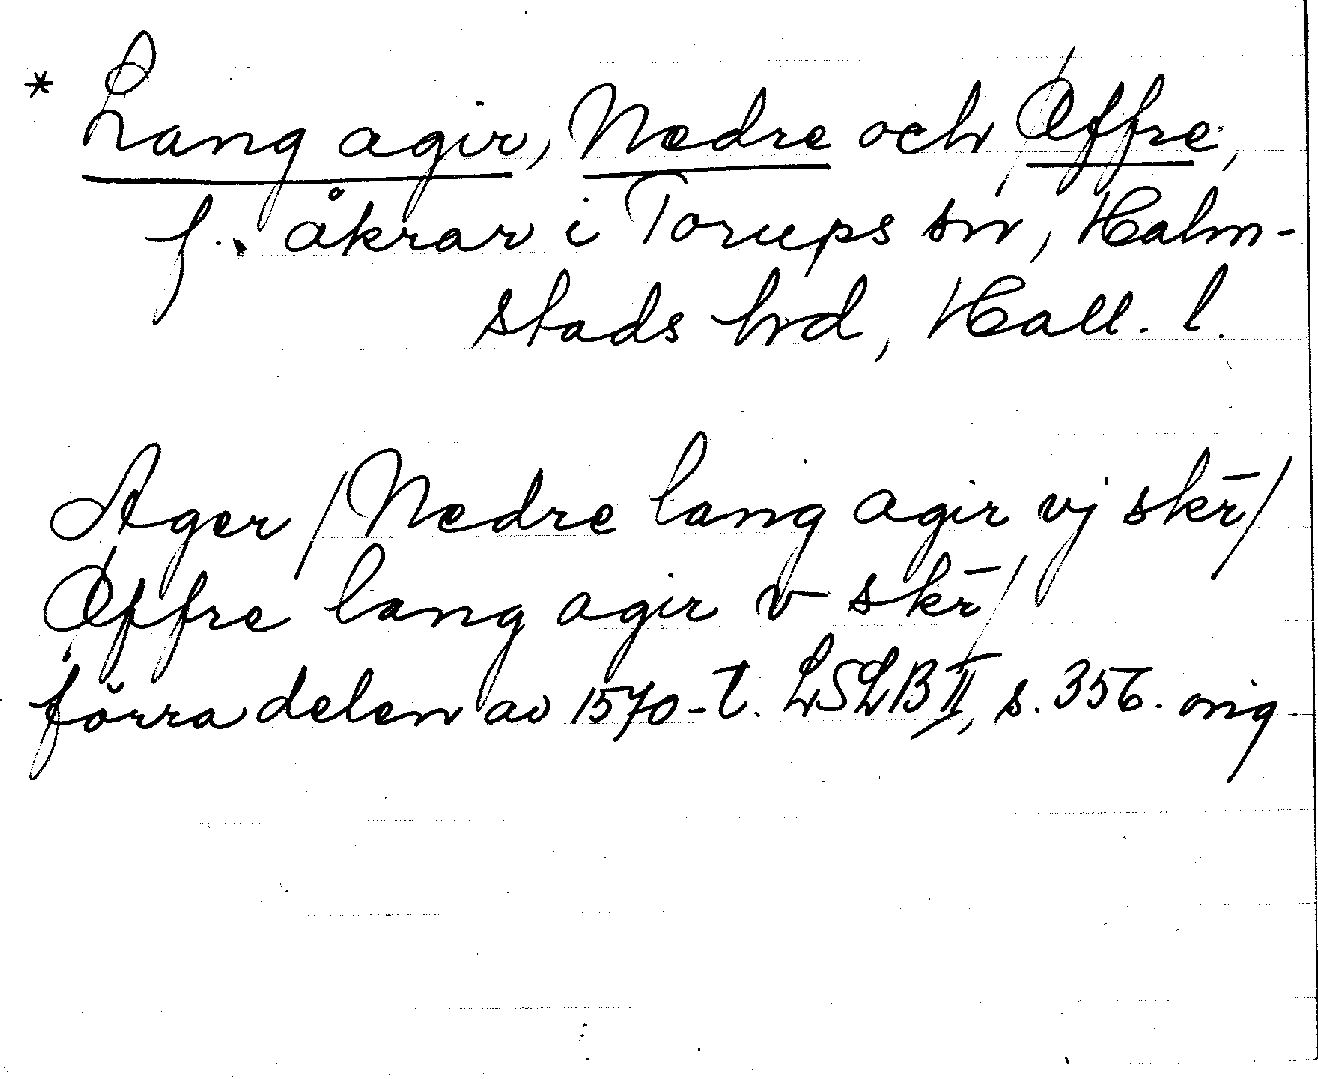 * Lang agir, Nædre och Øffre,
f. åkrar i Torups sn, Halm-
stads hrd, Hall. l.
Ager / Nædre lang agir vj skr̄ /
Øffre lang agir v skr̄ /
förra delen av 1570-t. LSLB II, s. 356. orig